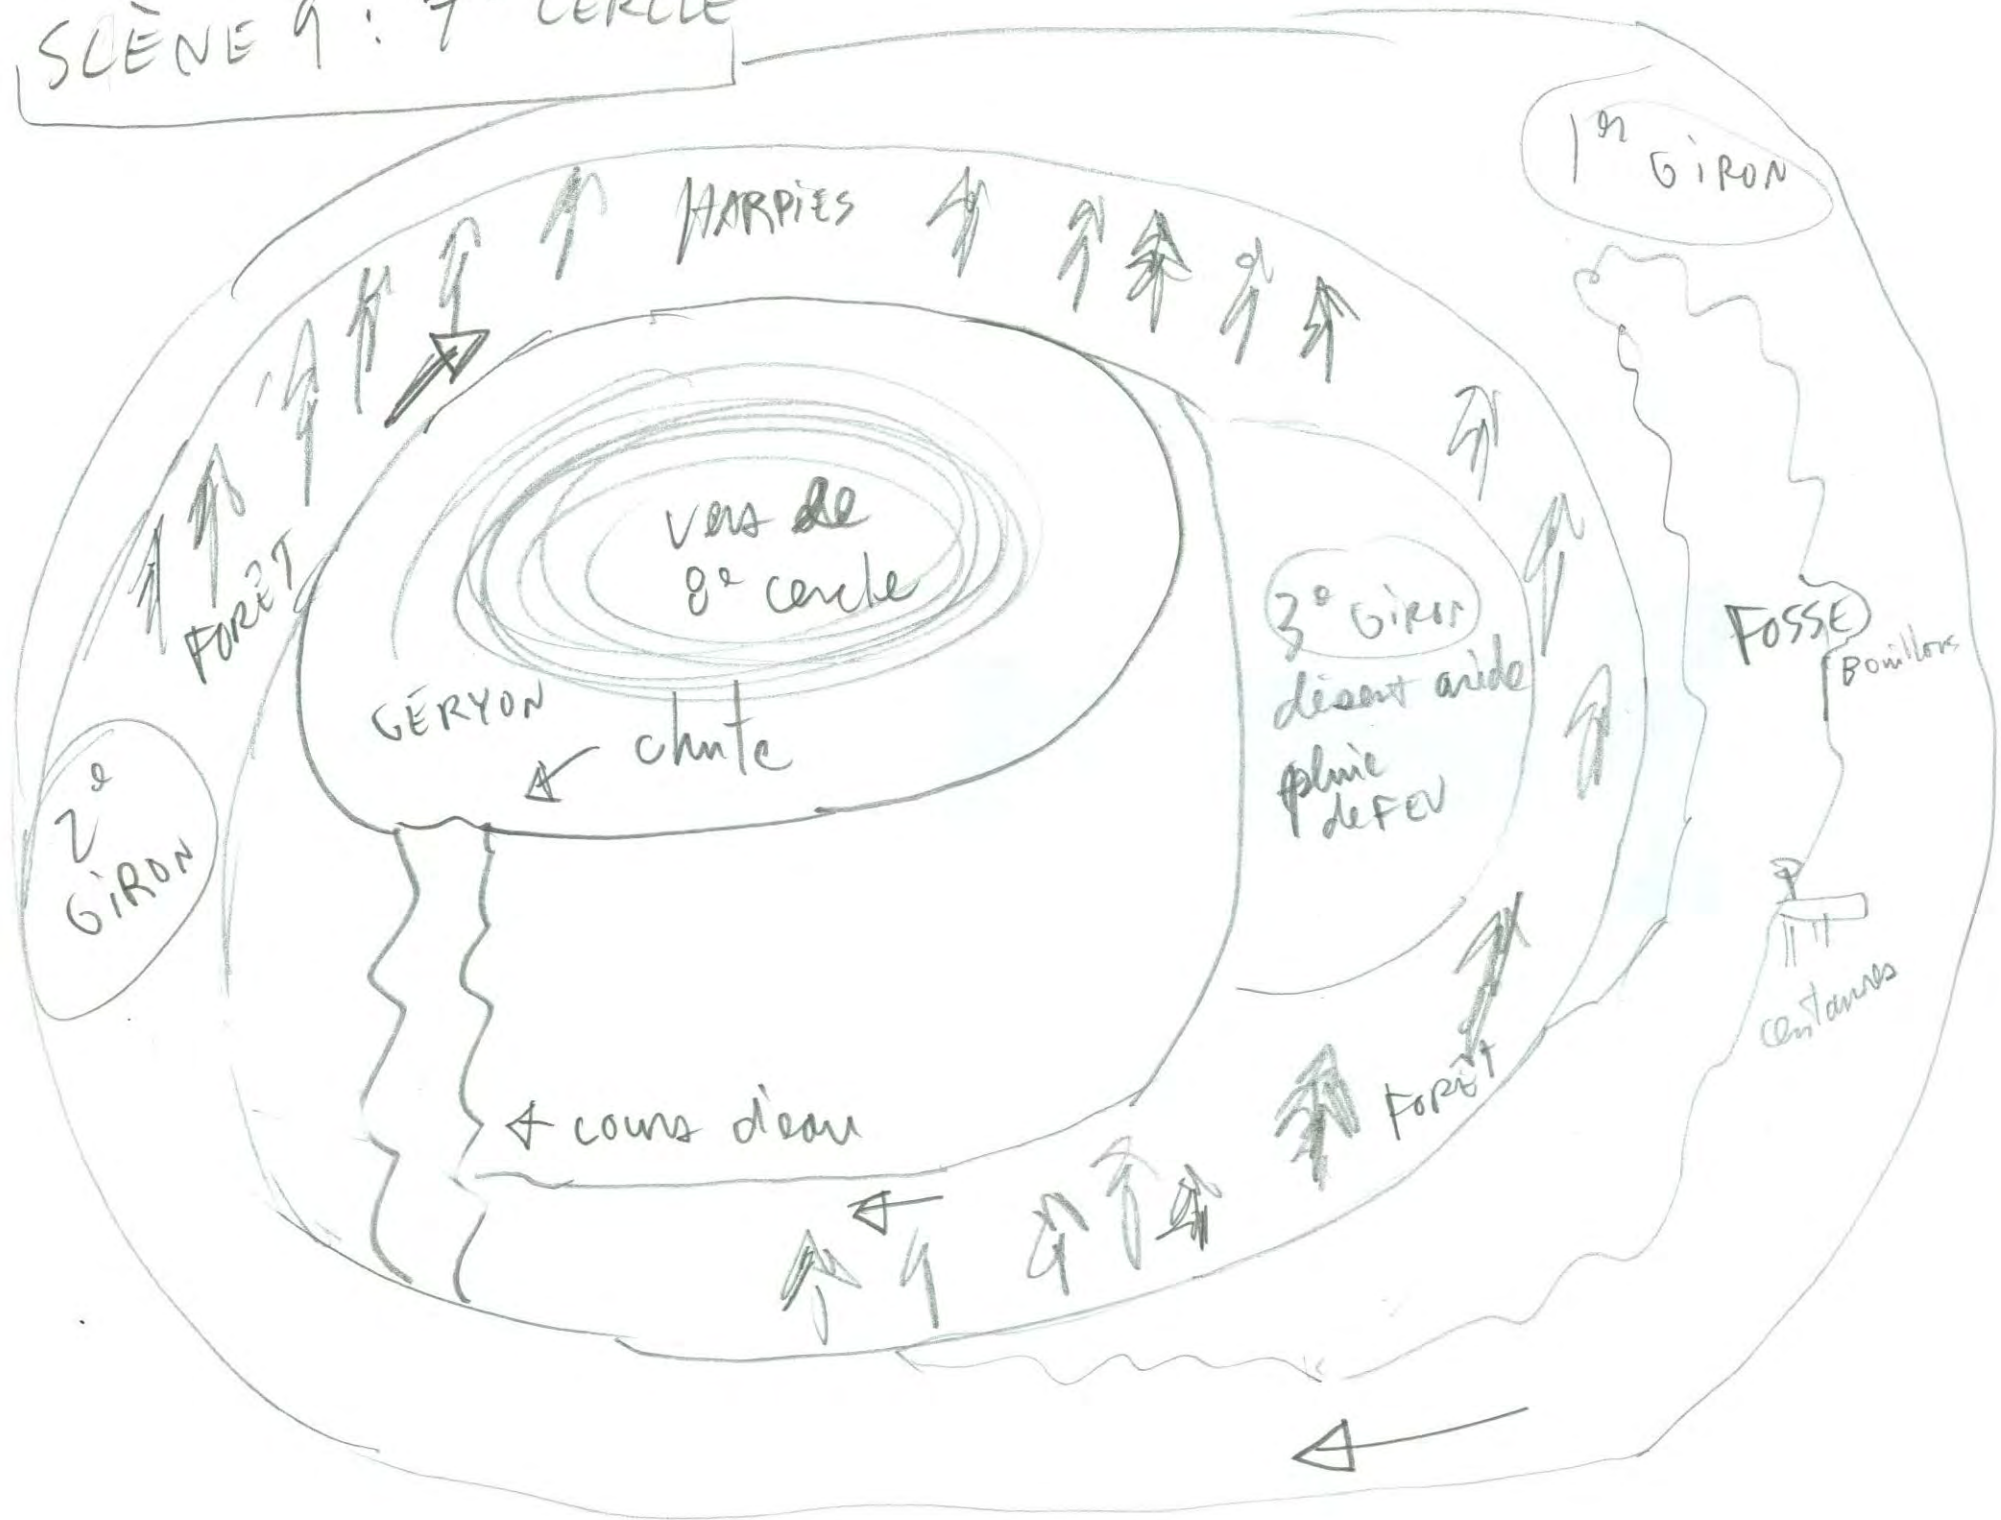 SCÈNE 9 : 7 CERCLE
1er GIRON
HARPIES
vers le
8e cercle
FORÊT
3e GIRON
désert aride
pluie
de FEU
FOSSE
Bouillons
GÉRYON
chute
2e
GIRON
centaures
cours d'eau
FORÊT